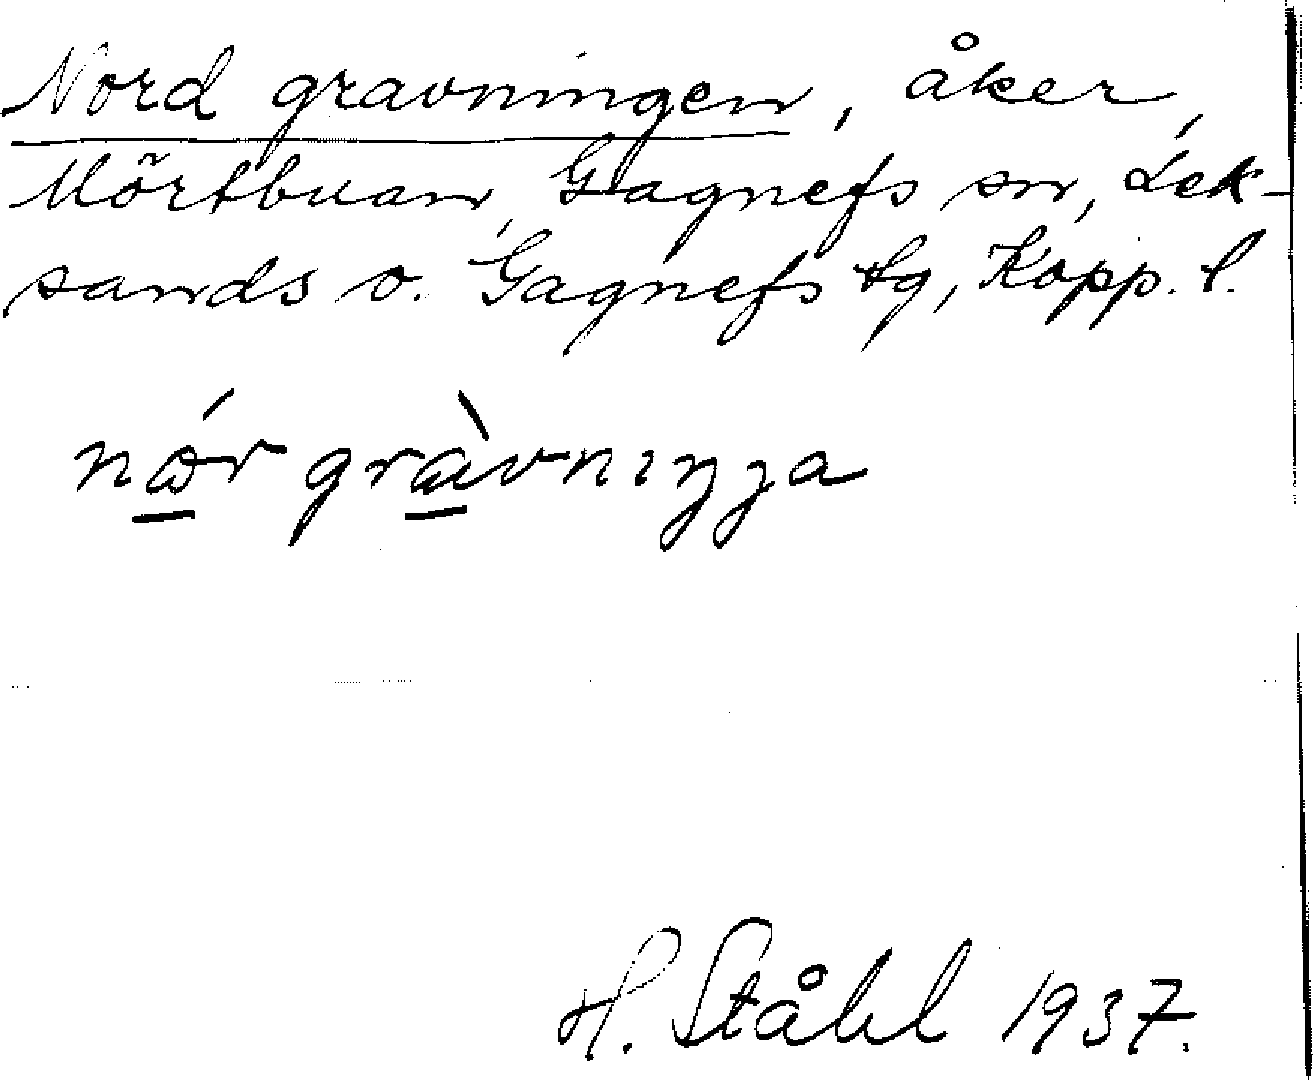 Nord gravningen, åker,
Mörtbuan, Gagnefs sn, Lek-
sands o. Gagnefs tg, Kopp. l.
nór gràvnıŋŋa
H. Ståhl 1937.